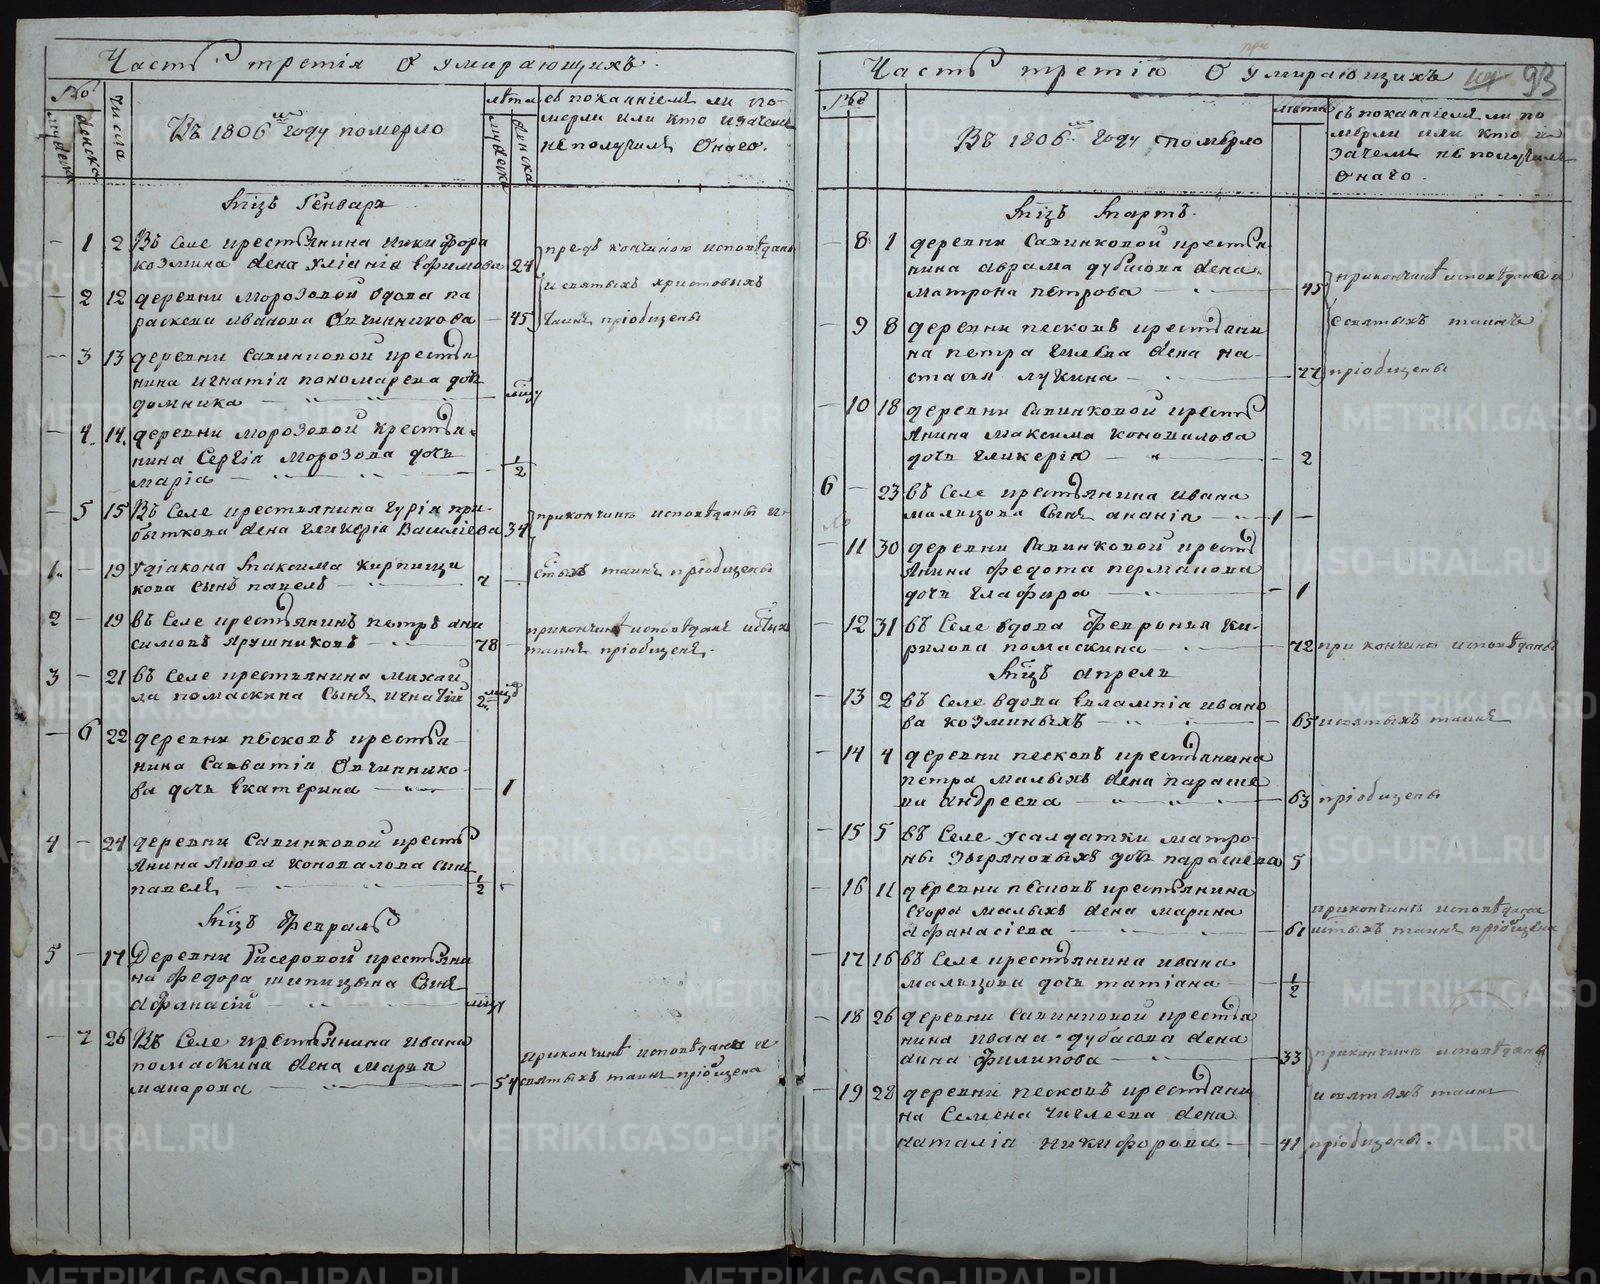 Часть третія О умирающихъ.
№
мужеска
женска
Числа
Въ 1806м году померло
лѣта
мужеска
женска
съ покаяніемъ ли по-
мерли или кто и зачемъ
не получилъ Онаго.
Мцъ Генварь
— 1 2 Въ Селе крестьянина Никифора
Козмина жена Уліанія Ефимова 24
предъ кончиною исповѣданы
— 2 12 деревни Морозовой вдова па
раскева Иванова Овчинникова — 45
и святыхъ христовыхъ
таинъ пріобщены
— 3 13 деревни Савинковой крестья
нина Игнатія Пономарева дочь
домника — мцу
— 4 14 деревни Морозовой крестья-
нина Сергія Морозова дочь
марія — 1/2
— 5 15 Въ Селе крестьянина Гурія при-
быткова жена Гликерія Василіева 34
прикончине исповѣданы и
стыхъ таинъ пріобщены
1 — 19 У діакона Максима Кирпищи
кова Сынъ павелъ — 7 —
2 — 19 въ Селе крестьянинъ петръ ани
симовъ Ярушниковъ — 78 —
прикончине исповѣданъ и стыхъ
таинъ пріобщенъ.
3 — 21 въ Селе крестьянина михаи
ла помаскина Сынъ игнатій 2 мцъ
— 6 22 деревни песковъ крестья-
нина Савватія Овчиннико-
ва дочь Екатерина — 1
4 — 24 деревни Савинковой кресть
янина Якова Коновалова сынъ
павелъ — 1/2
Мцъ Февраль
5 — 17 Деревни Гисеровой крестьяни
на Федора шипицына Сынъ
Афанасій — мцу
— 7 26 Въ Селе крестьянина ивана
помаскина жена Марѳа
макарова — 54
прикончине исповѣдана и
святыхъ таинъ пріобщена
Часть третія О умирающихъ 93
№
Въ 1806м году померло
лѣта
съ покаяніемъ ли по
мерли или кто и
зачемъ не получилъ
Онаго.
Мцъ Мартъ.
— 8 1 деревни Савинковой крестья
нина аврама дубасова жена
Матрона петрова — 45
прикончине исповѣданы и
— 9 8 деревни песковъ крестьяни
на петра Гилева жена на-
стасія лукина — 77
святыхъ таинъ
пріобщены
— 10 18 деревни Савинковой кресть
янина Максима Коновалова
дочь гликерія — 2
6 — 23 въ Селе крестьянина ивана
мальцова Сынъ ананія 1 —
— 11 30 деревни Савинковой кресть
янина федота пермякова
дочь глафира — 1
— 12 31 въ Селе вдова Феврония Ки-
рилова помаскина — 72
при кончине исповѣданы
Мцъ Апрель
— 13 2 въ Селе вдова Евлампіа ивано
ва козминыхъ — 65
и святыхъ таинъ
— 14 4 деревни песковъ крестьянина
петра малыхъ жена параске
ва андреева — 63
пріобщены
— 15 5 въ Селе у салдатки матро-
ны Зырановыхъ дочь параскева 5
— 16 11 деревни песковъ крестьянина
Егора малыхъ жена марина
афанасіева — 61
прикончине исповѣдана
и стыхъ таинъ пріобщена
— 17 16 въ Селе крестьянина ивана
мальцова дочь татіана — 1/2
— 18 26 деревни Савинковой крестья
нина ивана дубасова жена
анна филипова — 33
прикончине исповѣданы
— 19 28 деревни песковъ крестьяни
на Семена жена
наталіа никифорова — 41
и святыхъ таинъ
пріобщены.
METRIKI.GASO-URAL.RU